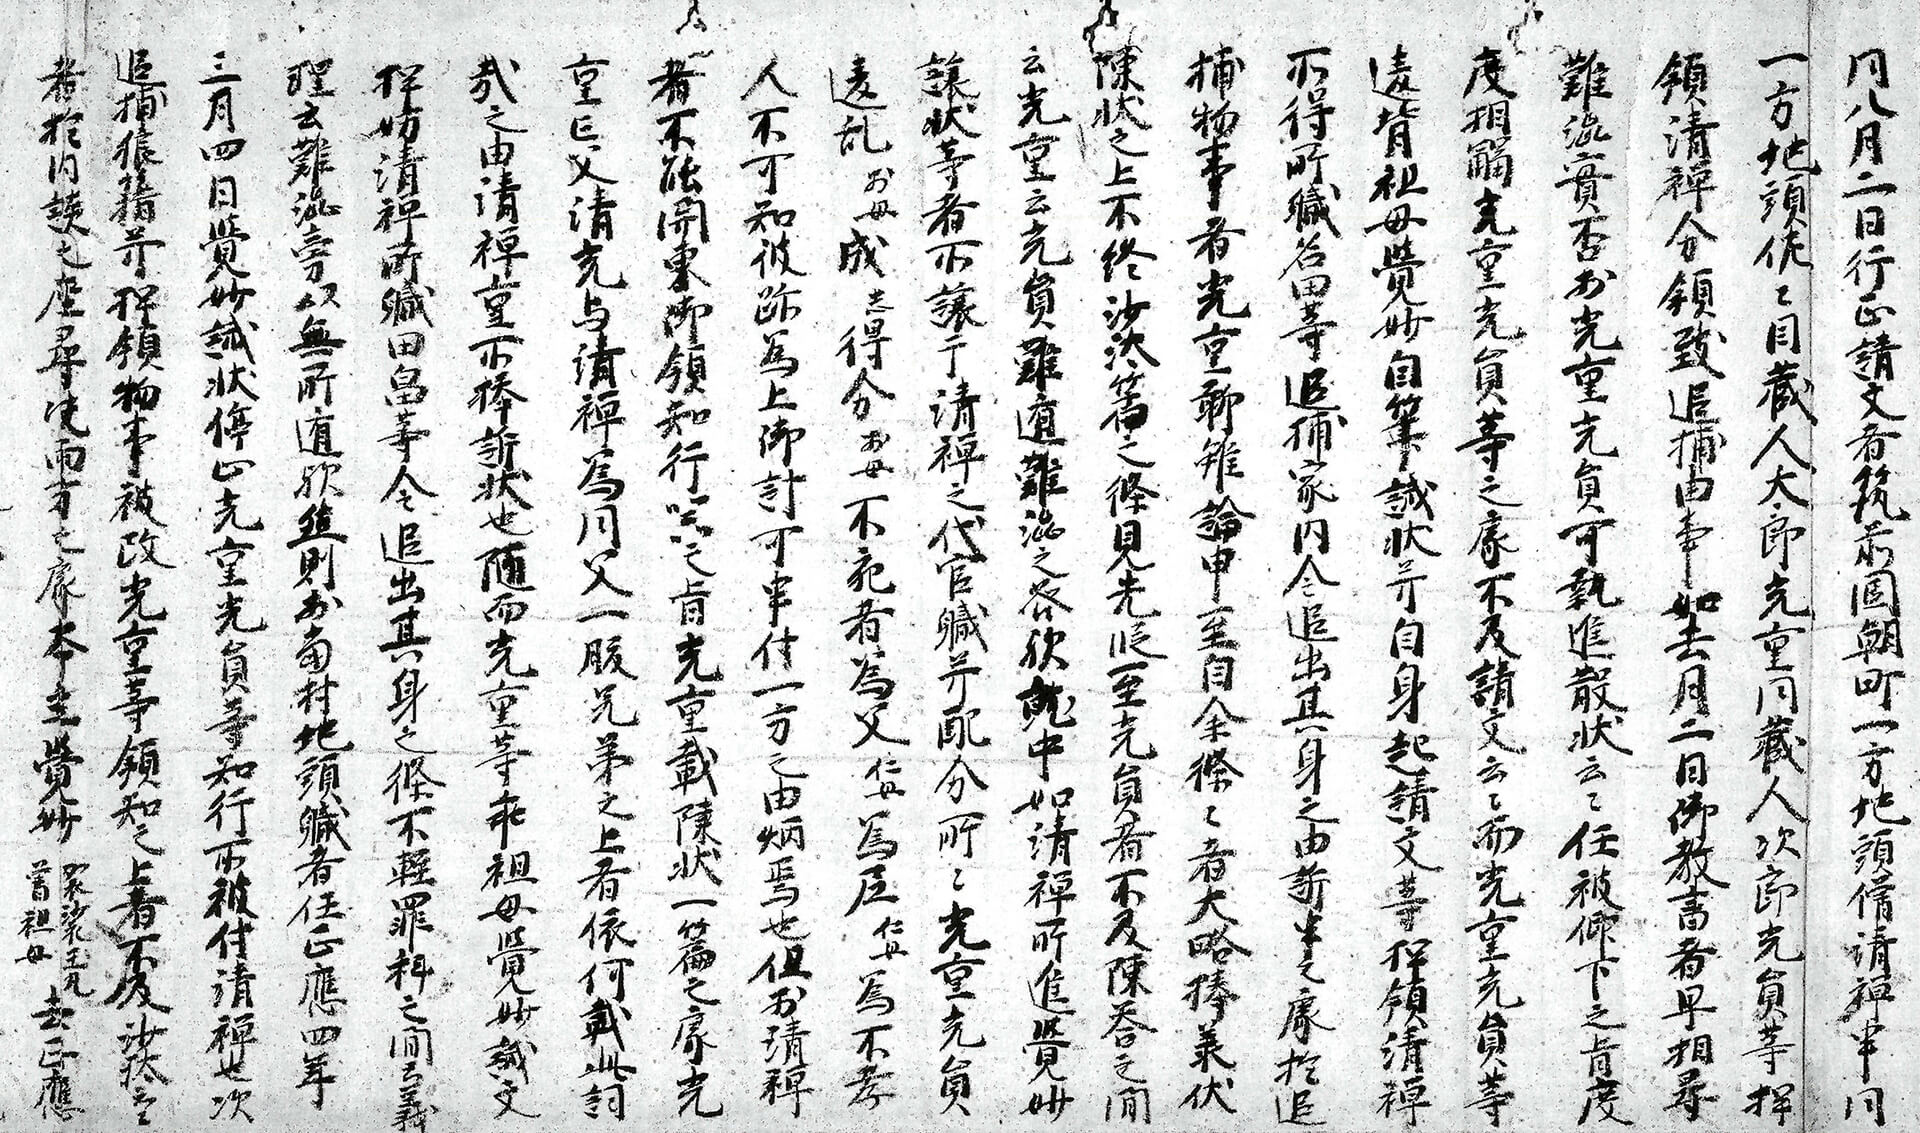 同八月二日行正請文者筑前国朝町一方地頭僧清禅申同
一方地頭佐々目蔵人太郎光重同蔵人次郎光員等押
領清禅分領致追捕由事如去月二日御教書者早相尋
難渋実否於光重光員可執進散状云々任被仰下之旨度
度相触光重光員等之処不及請文云々而光重光員等
違背祖母覚妙自筆誡状并自身起請文等押領清禅
所得所職名田等追捕家内令追出其身之由訴申之処於追
捕物事者光重聊雖論申至自余條々者大略捧承伏
陳状之上不終沙汰篇之條見先段至光員者不及陳答之間
云光重云光員難遁難渋之咎歟就中如清禅所進覚妙
譲状等者所譲于清禅之代官職并配分所々光重光員
違乱お毋成志得分お毋不宛者為父仁毋為尼仁毋為不孝
人不可知彼跡為上御計可申付一方之由炳焉也但於清禅
者不能関東御領知行之旨光重載陳状一篇之処光
重亡父清光与清禅為同父一腹兄弟之上者依何載此詞
哉之由清禅重所捧訴状也随而光重等乖祖母覚妙誡文
押妨清禅所職田畠等令追出其身之條不軽罪科之間云義
理云難渋旁以無所遁歟然則於当村地頭職者任正應四年
三月四日覚妙誡状停止光重光員等知行可被付清禅也次
追捕狼藉并押領物事被改光重等領知之上者不及沙汰矣
者於内談之座尋決両方之処本主覚妙袈裟王丸曽祖毋去正應